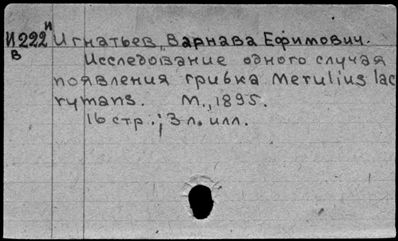 И222 Игнатьев, Варнава Ефимович.
И
В
Исследование одного случая
появления грибка Merulius lac
rymans. М., 1895.
16 стр.; 3 л. илл.